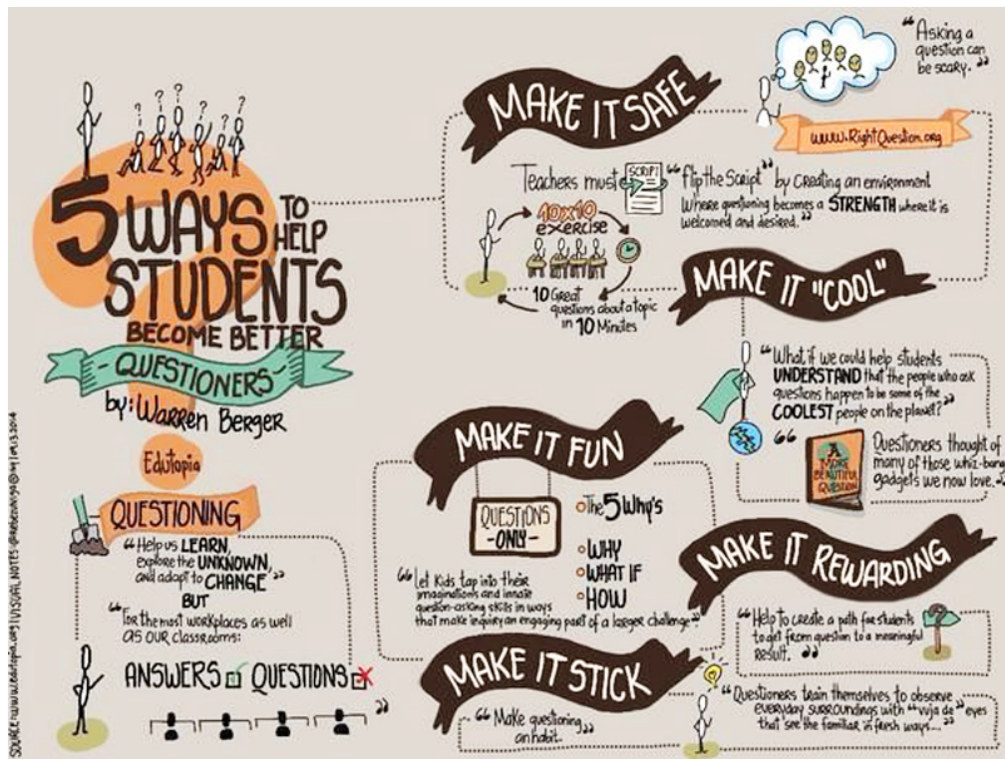 5 WAYS TO
HELP
STUDENTS
BECOME BETTER
- QUESTIONERS -
by: Warren Berger
Edutopia
QUESTIONING
"Help us LEARN,
explore the UNKNOWN,
and adapt to CHANGE"
BUT
"For the most workplaces as well
as our classrooms:
ANSWERS QUESTIONS
"
MAKE IT SAFE
"Asking a
question can
be scary."
www.RightQuestion.org
Teachers must
SCRIPT
"Flip the Script" by Creating an environment
Where questioning becomes a STRENGTH where it is
welcomed and desired."
10x10
exercise
10 Great
questions about a topic
in 10 Minutes
MAKE IT "COOL"
"What if we could help students
UNDERSTAND that the people who ask
questions happen to be some of the
COOLEST people on the planet?"
A
MORE
BEAUTIFUL
QUESTION
"Questioners thought of
many of those whiz-bang
gadgets we now love."
MAKE IT FUN
QUESTIONS
-ONLY-
The 5 Why's
WHY
WHAT IF
HOW
"Let Kids tap into their
imaginations and innate
question-asking skills in ways
that make inquiry an engaging part of a larger challenge"
MAKE IT REWARDING
"Help to create a path for students
to get from question to a meaningful
result."
MAKE IT STICK
"Make questioning
an habit."
"Questioners train themselves to observe
everyday surroundings with "vuja de" eyes
that see the familiar in fresh ways..."
SOURCE: www.edutopia.org | VISUAL NOTES